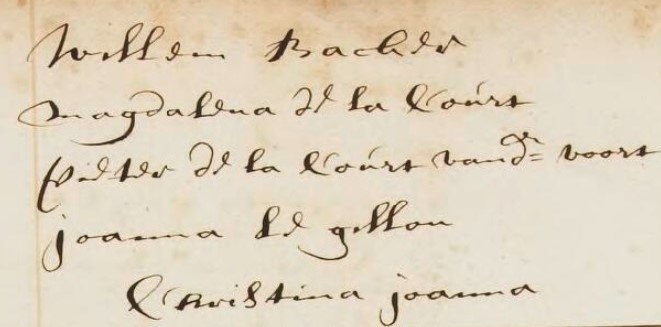 Willem Backer
Magdalena de la Court
Pieter de la Court vandr= voort
joanna le gillon
Christina joanna